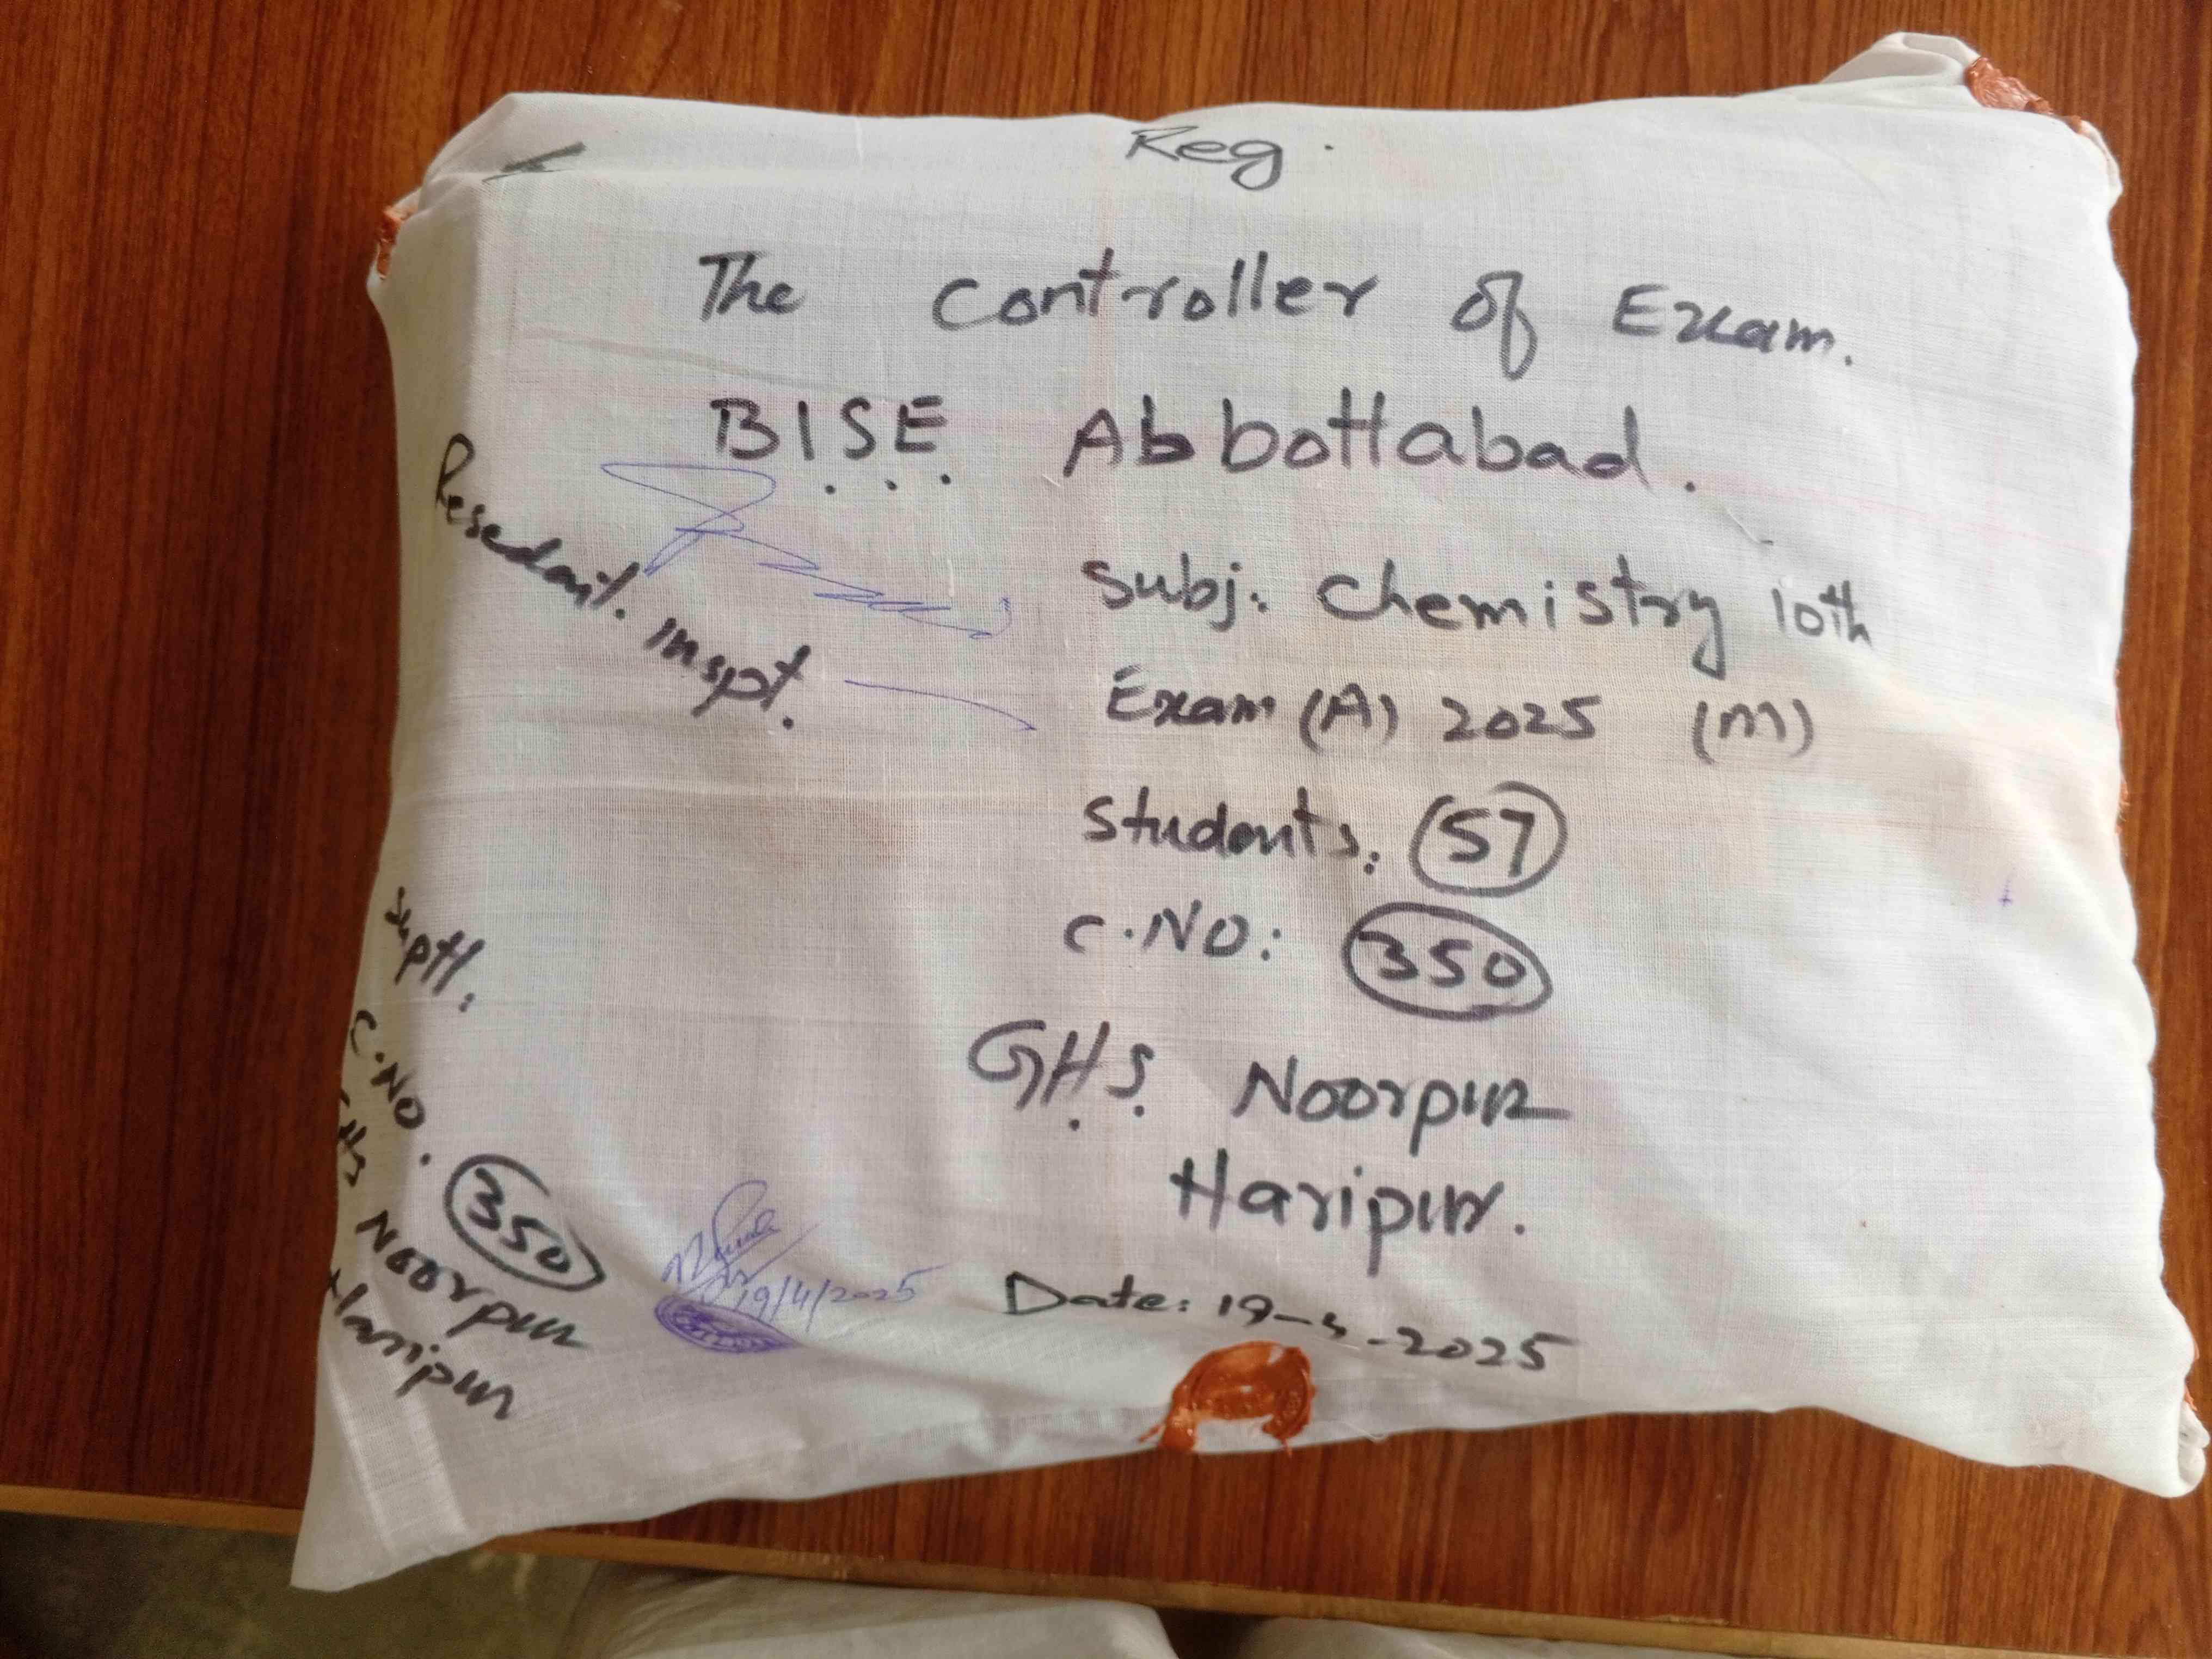 Reg.
The Controller of Exam.
B.I.S.E. Abbottabad.
Resedent. Inspt.
Subj: Chemistry 10th
Exam (A) 2025 (M)
Students: 57
C.NO: 350
G.H.S. Noorpur
Haripur.
Date: 19-4-2025
Suptt.
C.NO. 350
GHS Noorpur
Haripur
19/4/2025